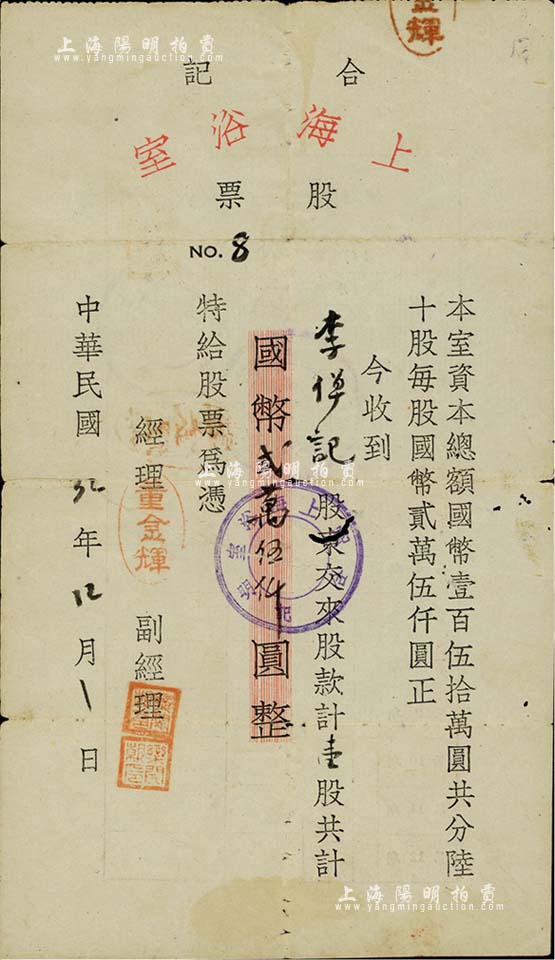 上海陽明拍賣
www.yangmingauction.com
金輝
合記
上海浴室
股票
NO. 8
本室資本總額國幣壹百伍拾萬圓共分陸
十股每股國幣貳萬伍仟圓正
今收到
李
記 股東交來股款計壹股共計
國幣弍萬伍仟圓整
特給股票為憑
經理 董金輝 副經理
中華民國 32 年 12 月 1 日
上海陽明拍賣
www.yangmingauction.com
上海陽明拍賣
www.yangmingauction.com